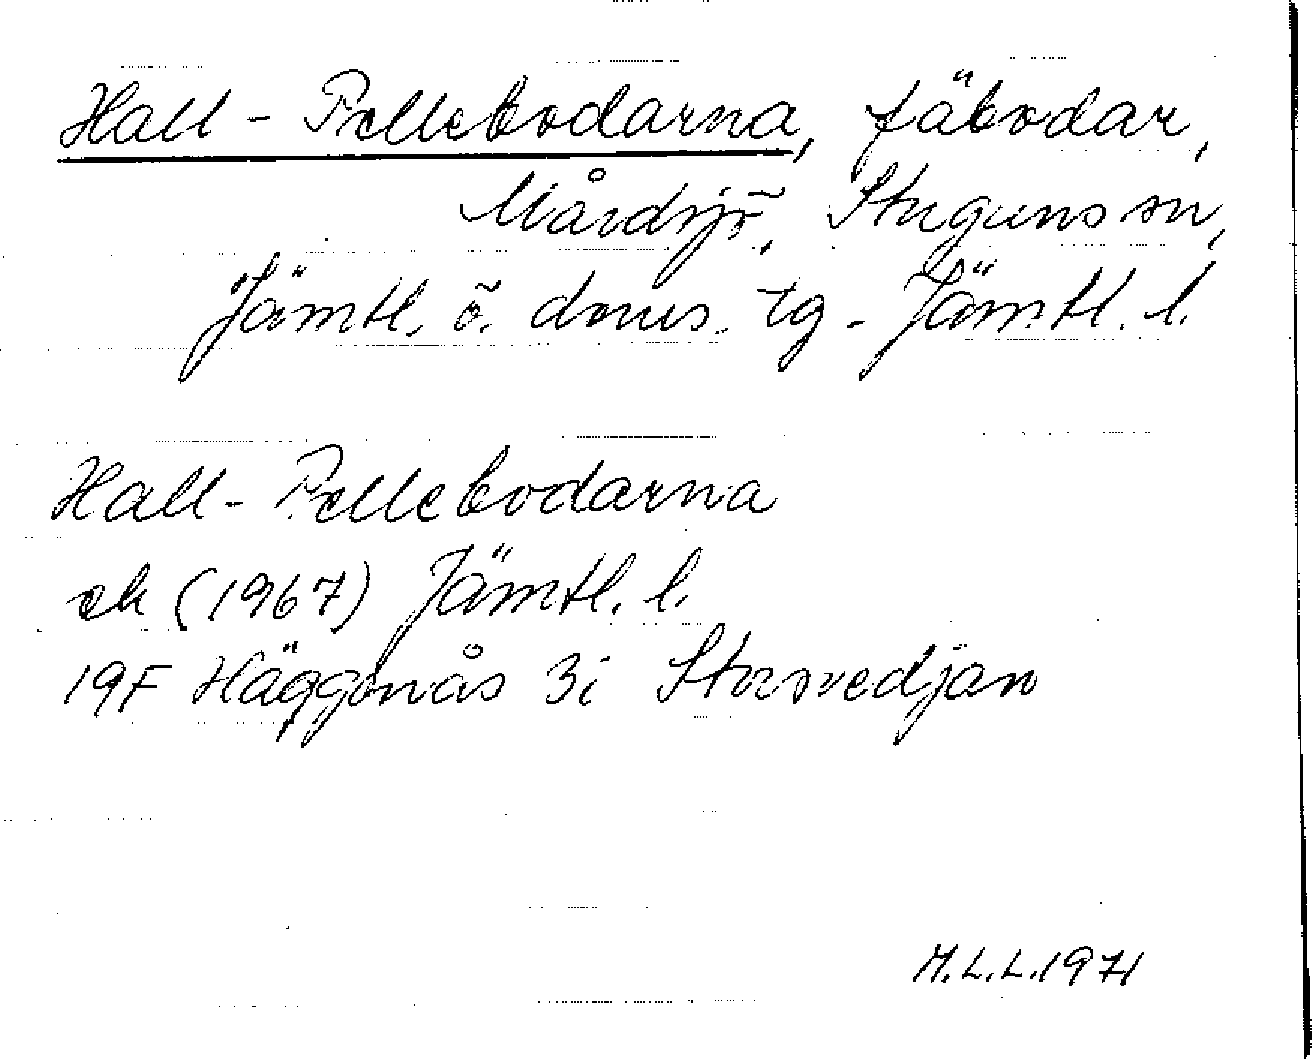 Hall-Pellebodarna, fäbodar,
Mårdsjö, Stuguns sn,
Jämtl. ö. doms. tg. Jämtl. l.
Hall-Pellebodarna
ek (1967) Jämtl. l.
19F Häggenås 3i Storsvedjan
M.L.L. 1971